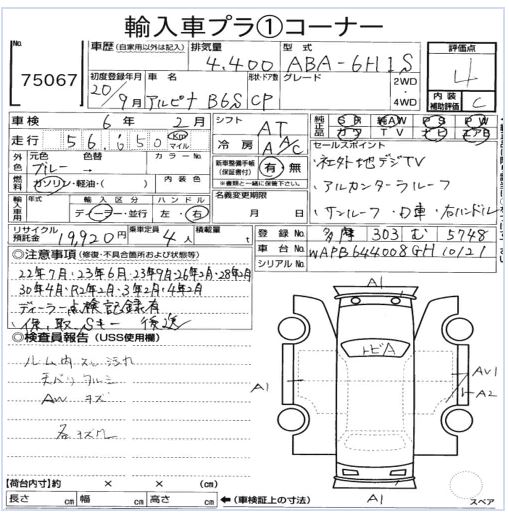 輸入車プラ①コーナー
No. 75067
車歴(自家用以外は記入) 排気量 4.400 型式 ABA-6H1S
初度登録年月 20/9月 車名 アルピナ B6S 形状・ドア数 CP グレード 2WD・4WD
評価点 4
内装補助評価 C
車検 6年 2月 シフト AT
走行 56,650 Km マイル 冷房 AAC
純正品 SR 純AW PS PW
カワ TV ナビ エアB
セールスポイント
・社外地デジTV
・アルカンターラルーフ
・サンルーフ ・D車・右ハンドル
外色 元色 ブルー 色替 → カラーNo.
燃料 ガソリン・軽油・( ) 内装色
新車整備手帳(保証書付) 有・無
※書類と一緒に保管して下さい。
輸入車用 年式 輸入区分 ディーラー・並行 ハンドル 左・右
名義変更期限 月 日
リサイクル預託金 19,920円 乗車定員 4人 積載量 t
月 日
登録No. 多摩 303 む 5748
車台No. WAPB644008GH10121
シリアルNo.
◎注意事項(修復・不具合箇所および状態等)
22年7月・23年6月・23年9月・26年2月・28年2月
30年4月・R2年2月・3年2月・4年2月
ディーラー点検記録有
保、取、Sキー 後送
◎検査員報告(USS使用欄)
ルーム内スレ汚れ
AW キズ
各キズ凹
A1
トビA
A1
AV1
A2
A1
スペア
【荷台内寸】約 × × (cm)
長さ cm 幅 cm 高さ cm ←(車検証上の寸法)